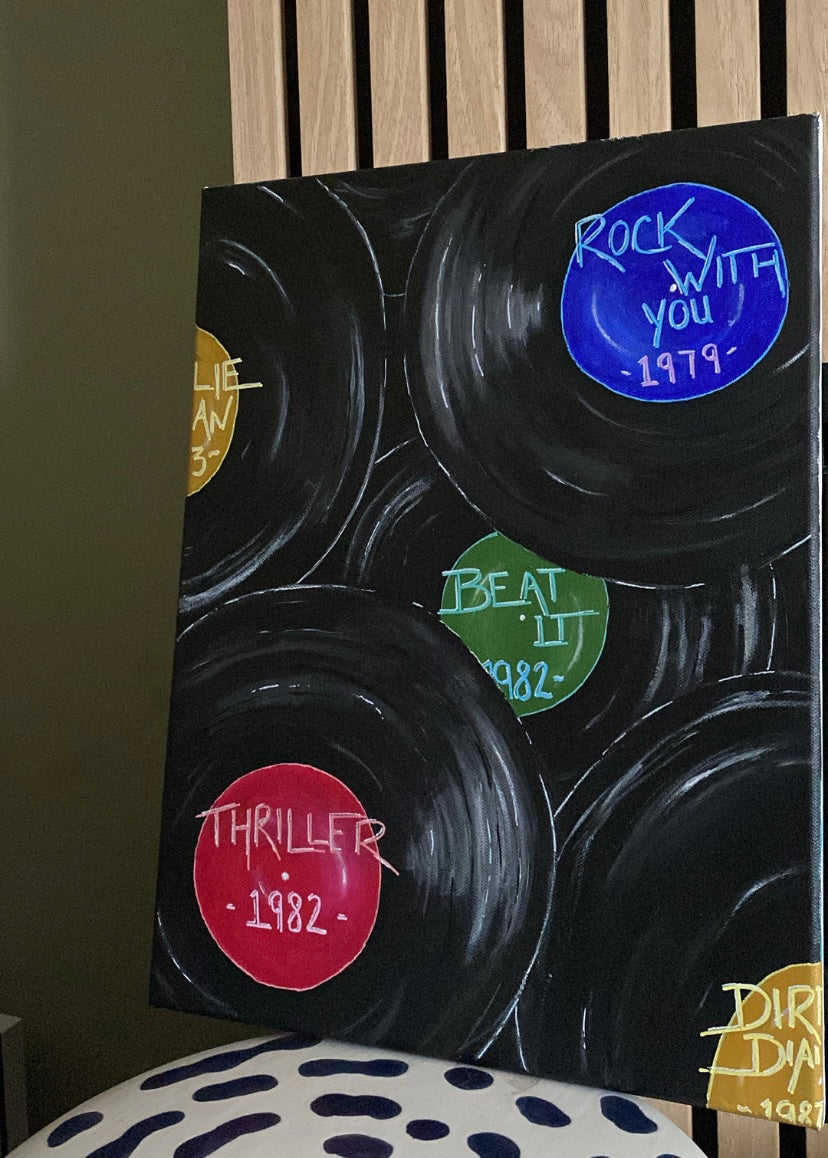 ROCK
WITH
YOU
-1979-
LIE
AN
3-
BEAT
IT
1982-
THRILLER
- 1982 -
DIR
DIA
- 198